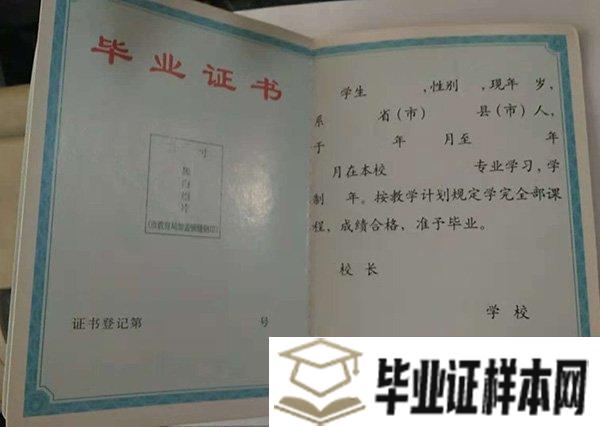 毕业证书
寸
黑白照片
(市教育局加盖钢缝钢印)
证书登记第 号
学生 ,性别 ,现年 岁,
系 省(市) 县(市)人,
于 年 月至 年
月在本校 专业学习,学
制 年。按教学计划规定学完全部课
程,成绩合格,准予毕业。
校 长
学 校
毕业证样本网